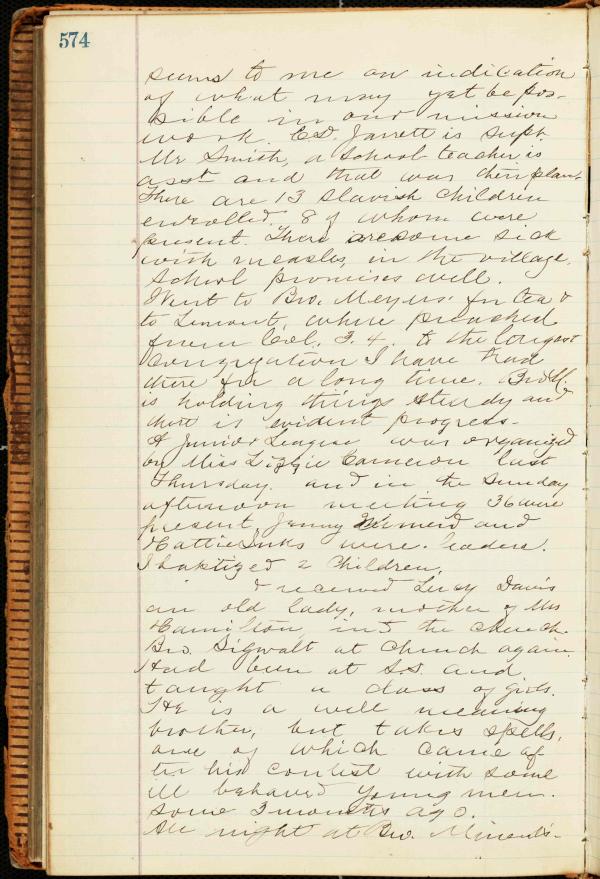 574
seems to me an indication
of what may yet be pos-
sible in our mission
work. C.D. Jarrett is supt.
Mr Smith, a school teacher, is
asst and that was their plan
There are 13 Slavish children
enrolled. 8 of whom were
present. There are some sick
with measles, in the village.
School promises well.
Went to Bro. Meyers' for tea &
to Lemont, where preached
from Col. 3.4. to the largest
congregation I have had
there for a long time. Bro M.
is holding things steady and
there is evident progress-
A Junior League was organized
by Miss Lizzie Cameron last
Thursday. and in the Sunday
afternoon meeting 36 were
present. Jenny and
Hattie Inks were leaders.
I baptized 2 Children,
I received Lucy Davis
an old lady, mother of Mrs
Hamilton, into the church.
Bro. Sigwalt at Church again.
Had been at S.S. and
taught a class of girls.
He is a well meaning
brother, but takes spells,
one of which came af
ter his contest with some
ill behaved young men.
some 3 months ago.
All night at Bro.